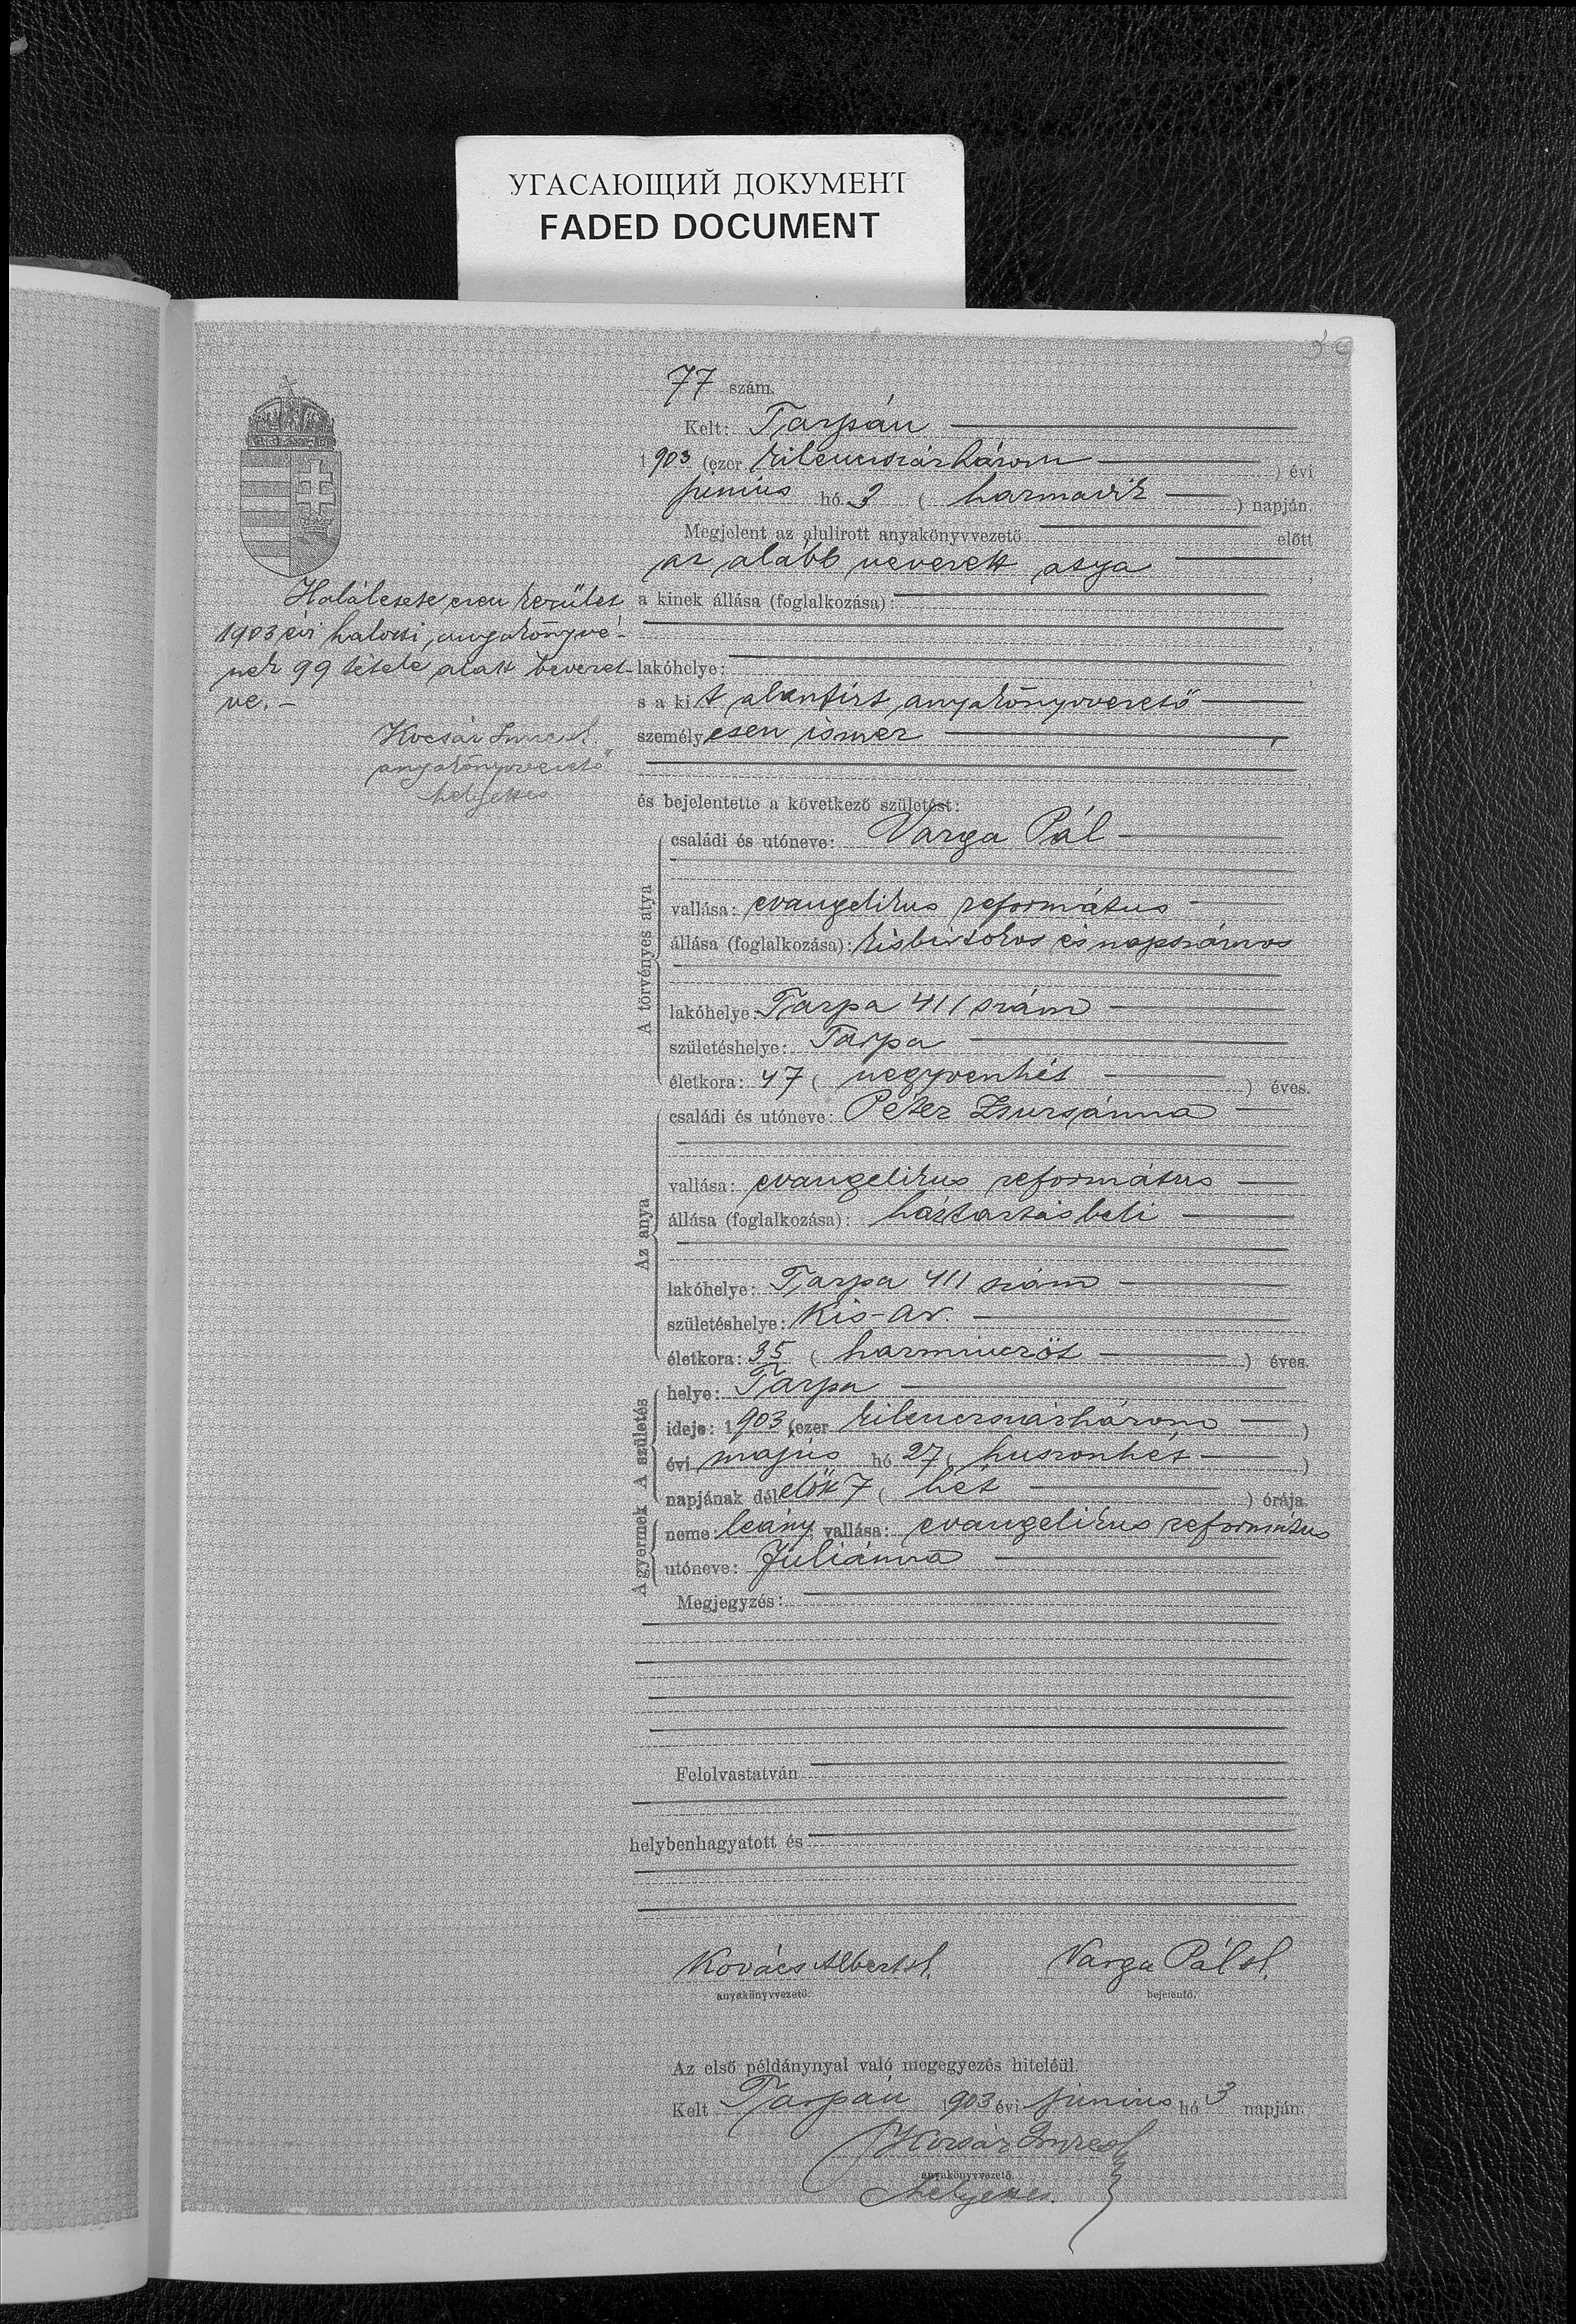 УГАСАЮЩИЙ ДОКУМЕНТ
FADED DOCUMENT
77 szám.
Kelt: Tarpán
1903 (ezer kilencszázhárom) évi
junius hó 3 (harmadik) napján.
Megjelent az alulirott anyakönyvvezető előtt
az alább nevezett atya,
a kinek állása (foglalkozása):
lakóhelye:
s a kit alantirt anyakönyvvezető
személyesen ismer,
és bejelentette a következő születést:
Halálesete ezen kerület
1903 évi halotti anyakönyvé-
nek 99 tétele alatt bevezet-
ve. –
Kocsár Imre sk.
anyakönyvvezető
helyettes
A törvényes atya
családi és utóneve: Varga Pál
vallása: evangelikus református
állása (foglalkozása): kisbirtokos és napszámos
lakóhelye: Tarpa 411 szám
születéshelye: Tarpa
életkora: 47 (negyvenhét) éves.
Az anya
családi és utóneve: Péter Zsuzsánna
vallása: evangelikus református
állása (foglalkozása): háztartásbeli
lakóhelye: Tarpa 411 szám
születéshelye: Kis-Ar.
életkora: 35 (harmincöt) éves.
A születés
helye: Tarpa
ideje: 1903 (ezer kilencszázhárom)
évi majus hó 27 (huszonhét)
napjának délelőtt 7 (hét) órája.
A gyermek
neme: leány vallása: evangelikus református
utóneve: Juliánna
Megjegyzés:
Felolvastatván
helybenhagyatott és
Kovács Albert sk. Varga Pál sk.
anyakönyvvezető. bejelentő.
Az első példánynyal való megegyezés hiteléül.
Kelt Tarpán 1903 évi junius hó 3 napján.
Kocsár Imre sk
anyakönyvvezető.
helyettes.